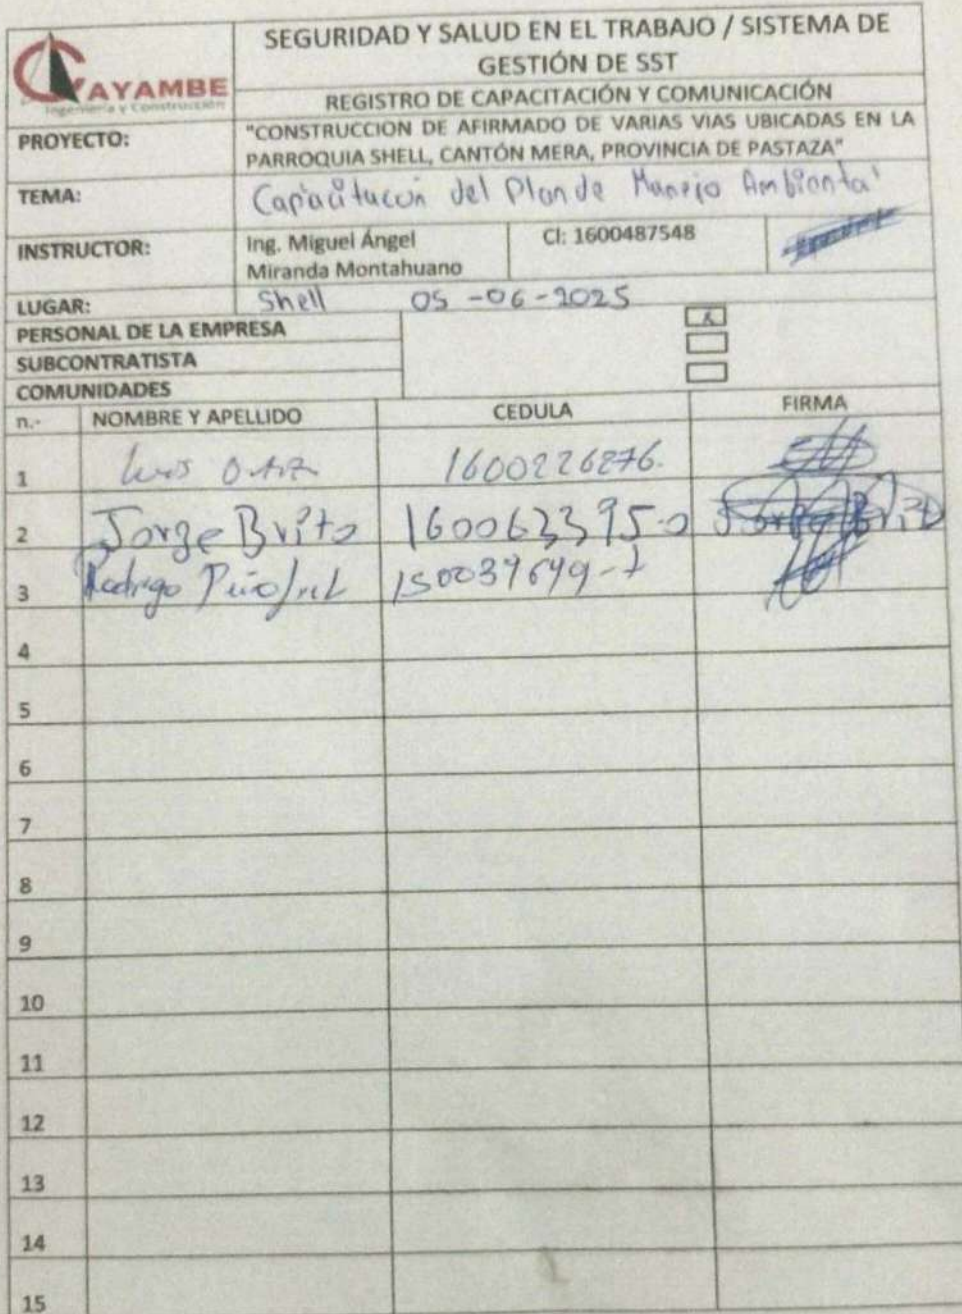 CAYAMBE
Ingeniería y Construcción
SEGURIDAD Y SALUD EN EL TRABAJO / SISTEMA DE
GESTIÓN DE SST
REGISTRO DE CAPACITACIÓN Y COMUNICACIÓN
PROYECTO:
"CONSTRUCCION DE AFIRMADO DE VARIAS VIAS UBICADAS EN LA
PARROQUIA SHELL, CANTÓN MERA, PROVINCIA DE PASTAZA"
TEMA:
Capacitacon del Plan de Manejo Ambiental
INSTRUCTOR:
Ing. Miguel Ángel
Miranda Montahuano
CI: 1600487548
LUGAR:
Shell 05-06-2025
PERSONAL DE LA EMPRESA
X
SUBCONTRATISTA
COMUNIDADES
n.- NOMBRE Y APELLIDO CEDULA FIRMA
1 Luis Ortiz 1600226276.
2 Jorge Brito 160063395-0 Jorge Brito
3 Rodrigo 150039649-7
4
5
6
7
8
9
10
11
12
13
14
15